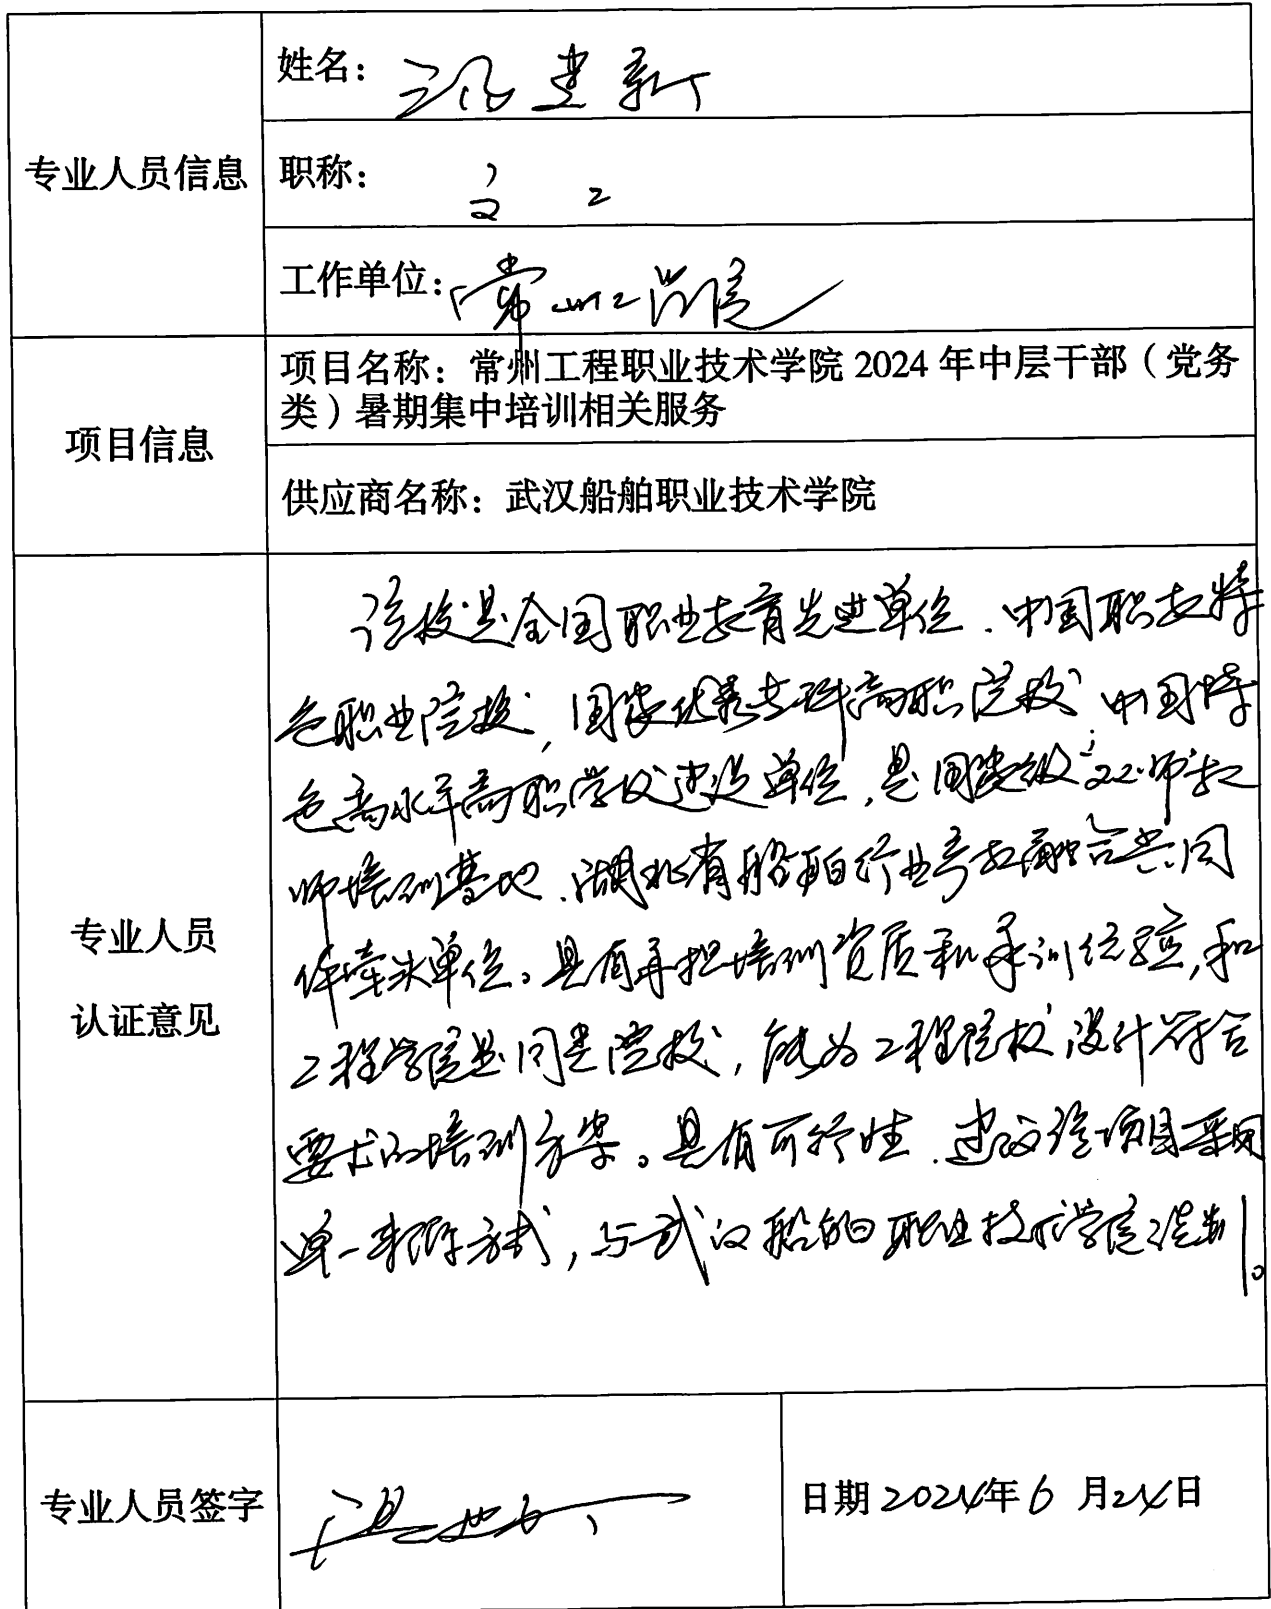 专业人员信息
姓名：建新
职称：
工作单位：常州工学院
项目信息
项目名称：常州工程职业技术学院 2024 年中层干部（党务
类）暑期集中培训相关服务
供应商名称：武汉船舶职业技术学院
专业人员
认证意见
该校是全国职业教育先进单位、中国职教特
色职业院校，国家优秀专科高职院校、中国特
色高水平高职学校建设单位，是国家级双师教
师培训基地、湖北省船舶行业产教融合共同
体牵头单位。具有承担培训资质和承训经验，和
工程学院是同类院校，能为工程院校设计符合
要求的培训方案。具有可行性、建议该项目采用
单一来源方式，与武汉船舶职业技术学院谈判。
专业人员签字
日期 2024年 6 月 24日